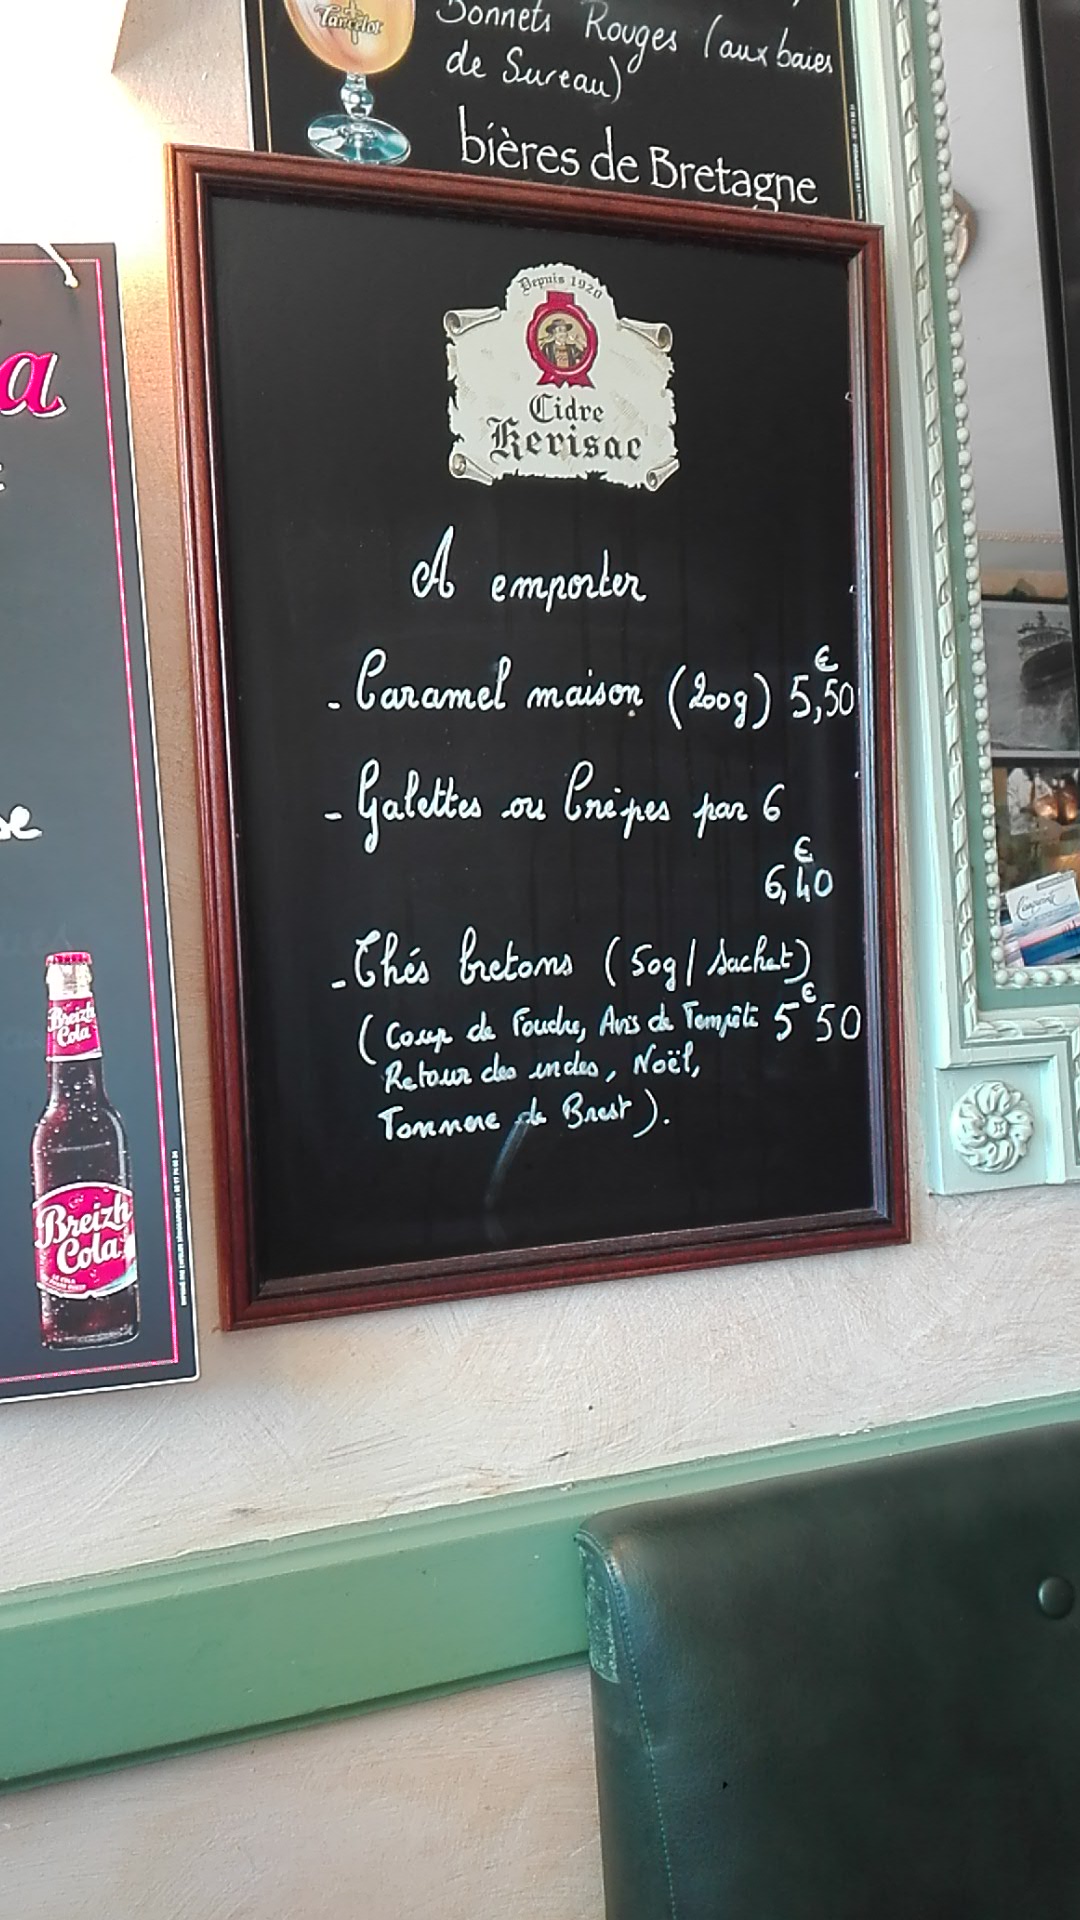 Lancelot
Bonnets Rouges (aux baies
de Sureau)
bières de Bretagne
Depuis 1920
Cidre
Kerisac
A emporter
- Caramel maison (200g) 5,50 €
- Galettes ou Crêpes par 6
6,40 €
- Thés bretons (50g/sachet)
(Coup de Foudre, Avis de Tempête 5€50
Retour des indes, Noël,
Tonnerre de Brest).
a
se
Breizh
Cola
Breizh
Cola